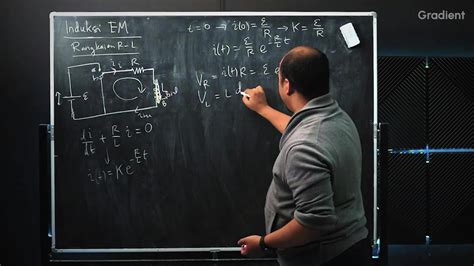 Gradient
Induksi EM
Rangkaian R-L
i R
ε
di/dt + R/L i = 0
i(t) = K e^{-R/L t}
t = 0 → i(0) = ε/R → K = ε/R
i(t) = ε/R e^{-R/L t}
V_R = i(t) R = ε e
V_L = L d